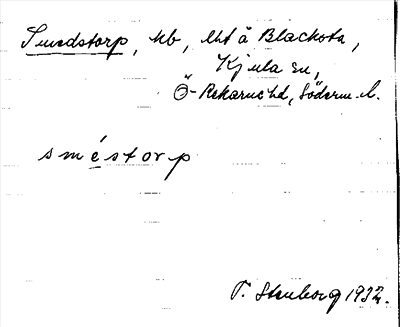 Smedstorp, hb, lht å Blacksta,
Kjula sn,
Ö-Rekarne hd, Söderm. l.
sméstorp
T. Stenborg 1932.